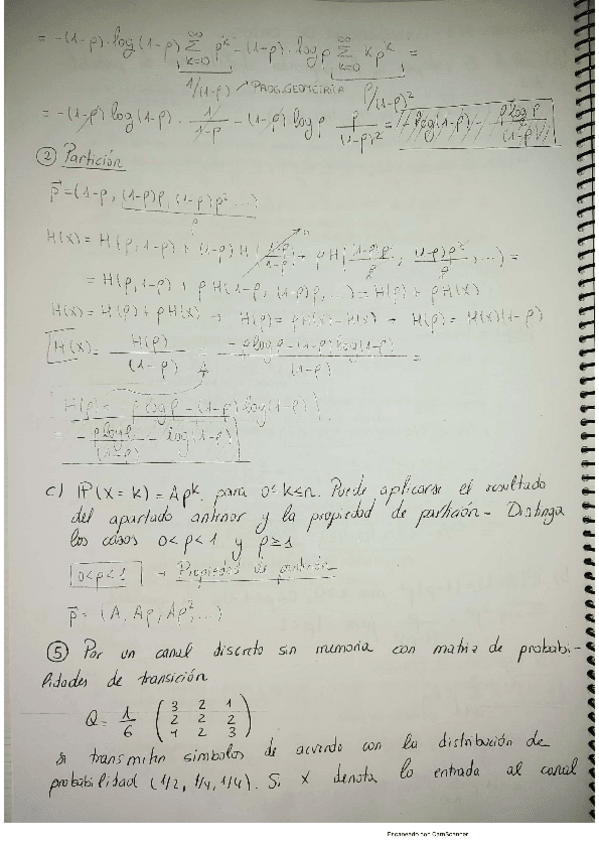 = -(1-p)·log(1-p) ∑_{k=0}^∞ p^k - (1-p)·log p ∑_{k=0}^∞ k p^k =
1/(1-p) → PROG. GEOMETRÍA p/(1-p)²
= -(1-p) log(1-p) · 1/(1-p) - (1-p) log p p/(1-p)² = - log(1-p) - p log p/(1-p)
② Partición
p⃗ = (1-p, (1-p)p, (1-p)p², ...)
p
H(X) = H(p, 1-p) + (1-p) H((1-p)/(1-p)) + p H((1-p)p/p, (1-p)p²/p, ...) =
= H(p, 1-p) + p H(1-p, (1-p)p, ...) = H(p) + p H(X)
H(X) = H(p) + p H(X) → H(p) = p H(X) - H(X) → H(p) = H(X)(1-p)
H(X) = H(p)/(1-p) = (-p log p - (1-p) log(1-p))/(1-p) =
H(p) = - p log p - (1-p) log(1-p)
- p log p/(1-p) - log(1-p)
c) ℙ(X = k) = A p^k, para 0 ≤ k ≤ n. Puede aplicarse el resultado
del apartado anterior y la propiedad de partición - Distinga
los casos 0 < p < 1 y p ≥ 1
0 < p < 1 → Propiedad de partición
p⃗ = (A, Ap, Ap², ...)
⑤ Por un canal discreto sin memoria con matriz de probabi-
lidades de transición
Q = 1/6 (3 2 1
2 2 2
1 2 3)
se transmiten símbolos de acuerdo con la distribución de
probabilidad (1/2, 1/4, 1/4). Si X denota la entrada al canal
Escaneado con CamScanner